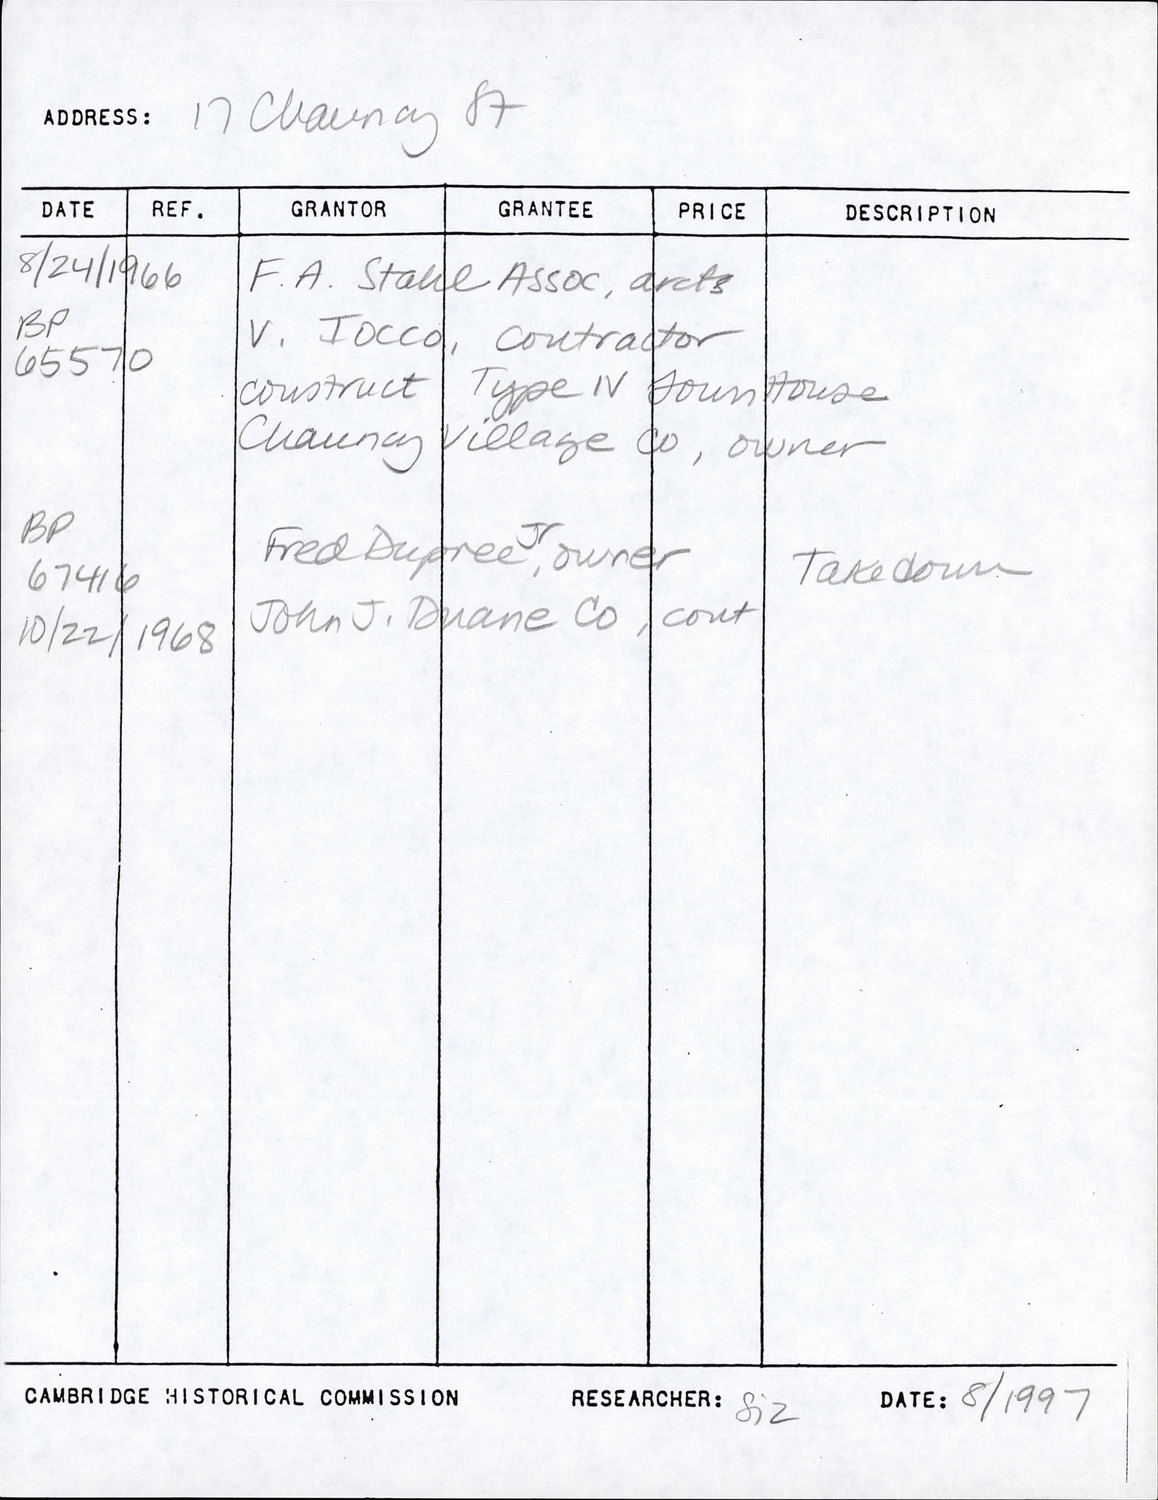 ADDRESS: 17 Chauncy St
DATE REF. GRANTOR GRANTEE PRICE DESCRIPTION
8/24/1966 F.A. Stahl Assoc, arcts
BP V. Iocco, contractor
65570
construct Type IV townhouse
Chauncy Village Co, owner
BP
Fred Dupree Jr, owner Takedown
67416
John J. Duane Co, cont
10/22/1968
CAMBRIDGE HISTORICAL COMMISSION RESEARCHER: DATE: 8/1997